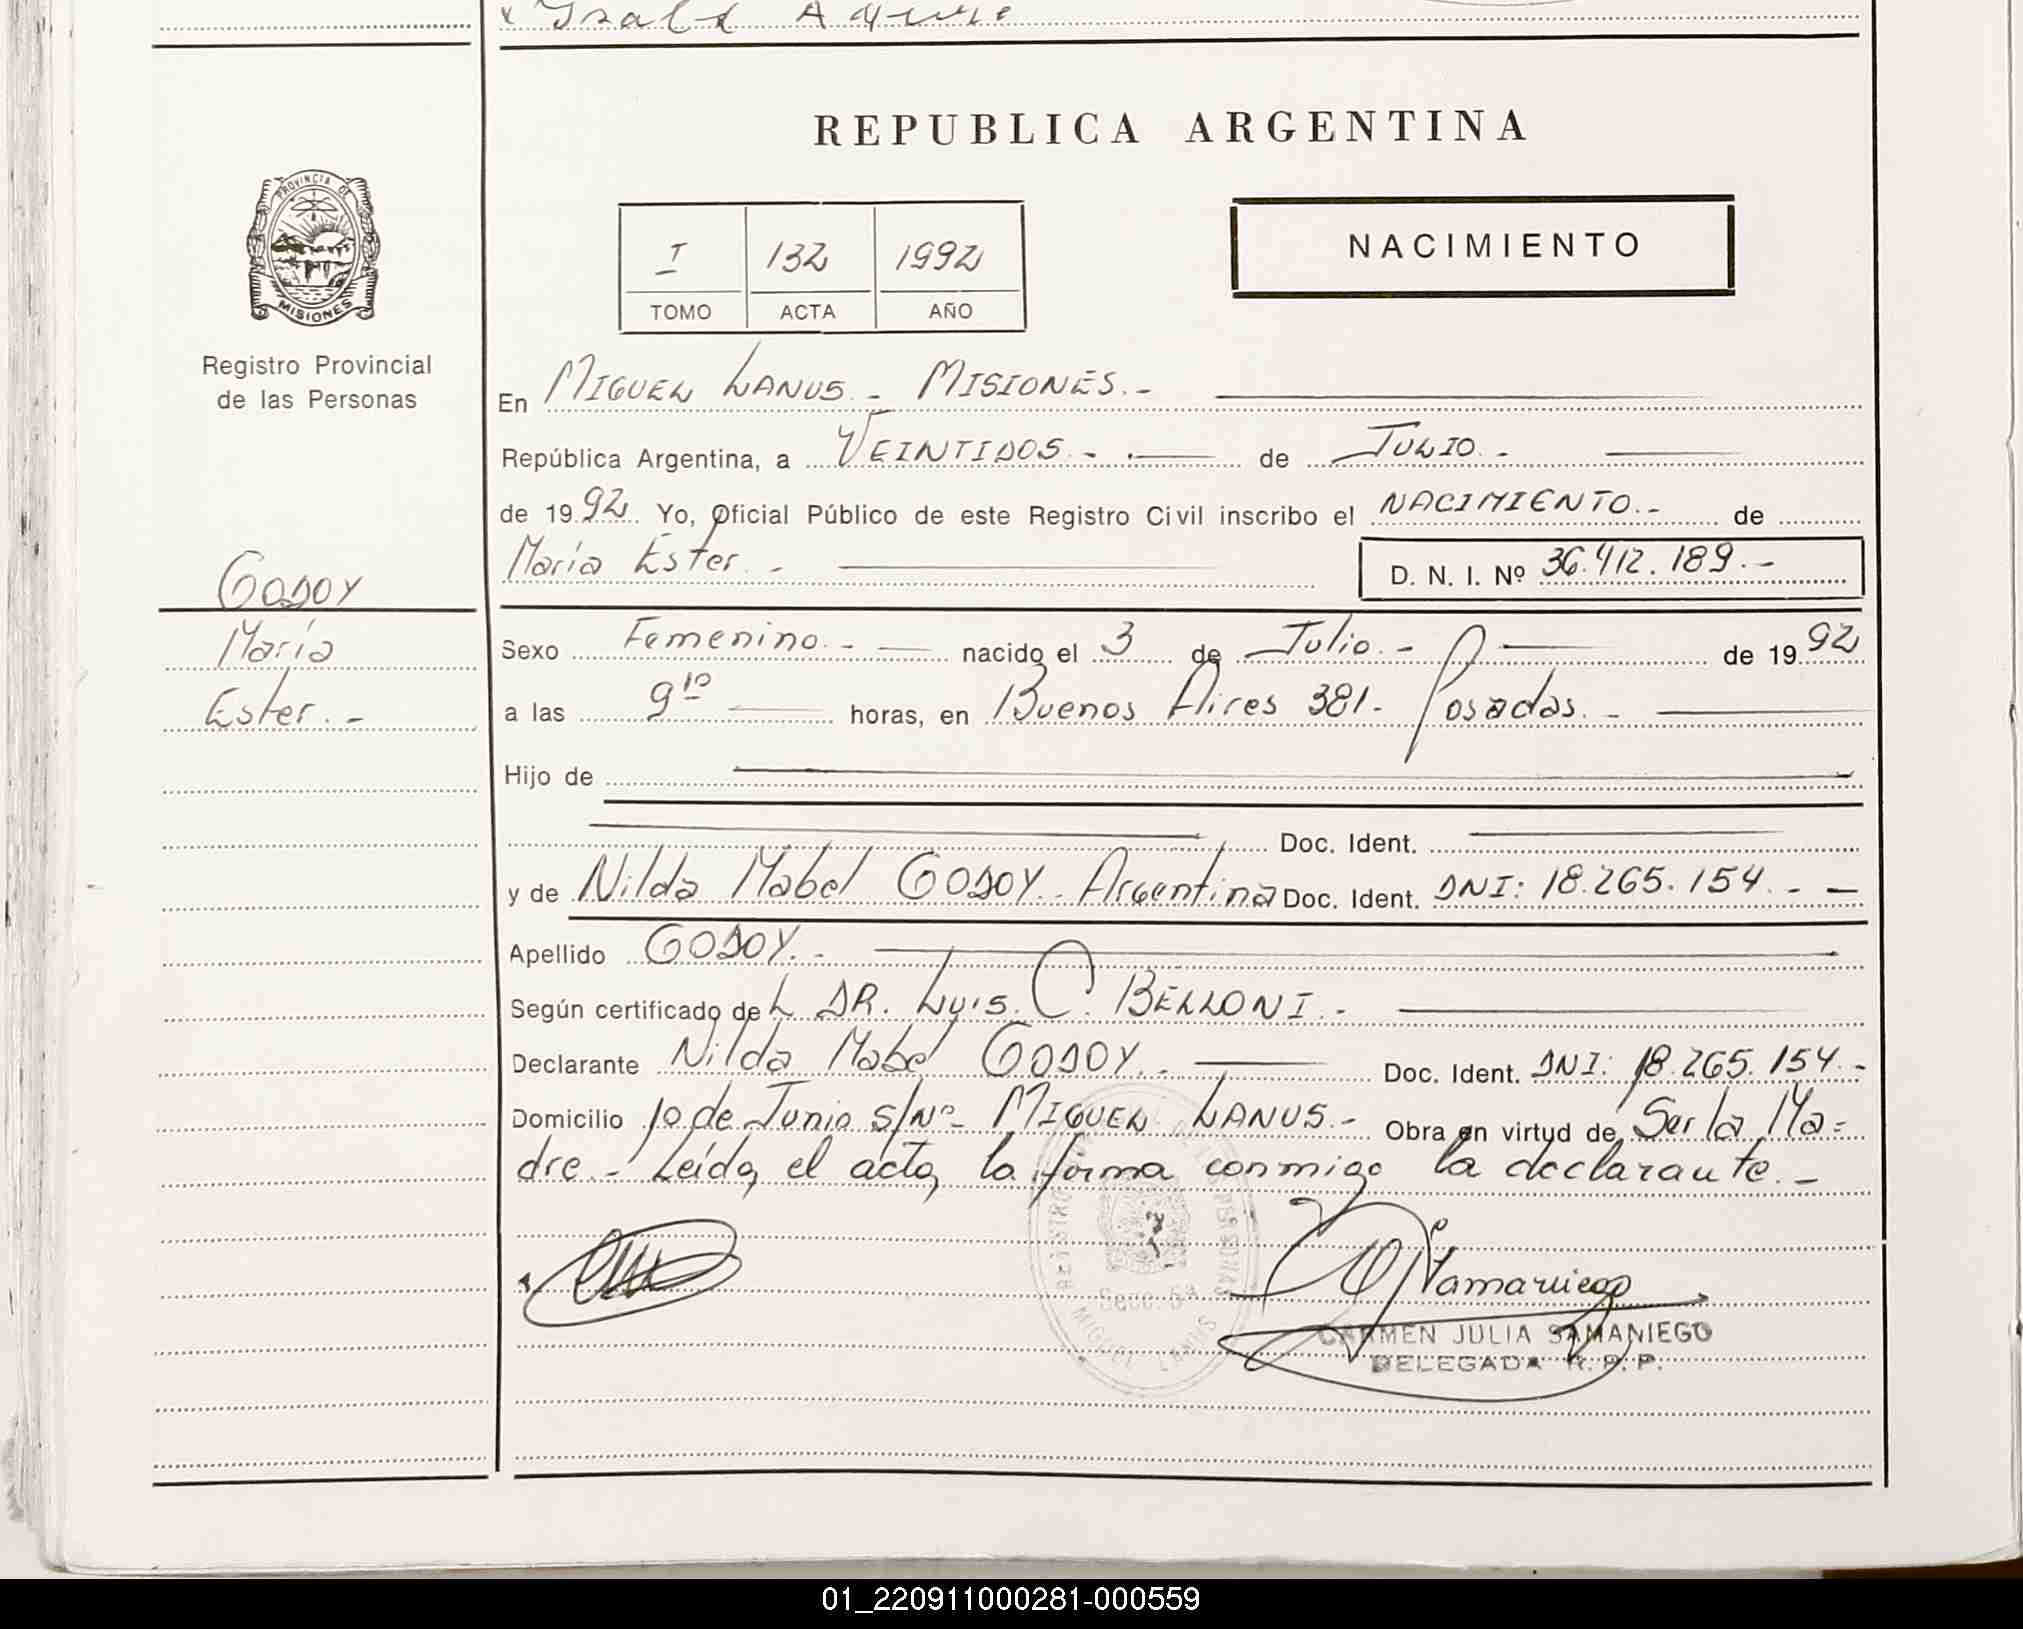 x Isabel Aguirre
REPUBLICA ARGENTINA
PROVINCIA DE
MISIONES
Registro Provincial
de las Personas
I 132 1992
TOMO ACTA AÑO
NACIMIENTO
En MIGUEL LANUS - MISIONES.-
República Argentina, a VEINTIDOS.- de JULIO.-
de 1992. Yo, Oficial Público de este Registro Civil inscribo el NACIMIENTO.- de
María Ester.-
D. N. I. Nº 36.412.189.-
GODOY
María
Ester.-
Sexo Femenino.- nacido el 3 de Julio.- de 1992
a las 9¹⁰ horas, en Buenos Aires 381- Posadas.-
Hijo de
Doc. Ident.
y de Nilda Mabel GODOY. Argentina Doc. Ident. DNI: 18.265.154.-
Apellido GODOY.-
Según certificado deL DR. Luis. C. BELLONI.-
Declarante Nilda Mabel GODOY.- Doc. Ident. DNI: 18.265.154.-
Domicilio 1º de Junio s/Nº MIGUEL LANUS.- Obra en virtud de Ser la Ma=
dre.- Leída el acta, la firma conmigo la declarante.-
Secc. 5ª
MIGUEL LANUS
Samaniego
CARMEN JULIA SAMANIEGO
DELEGADA R. P. P.
01_220911000281-000559